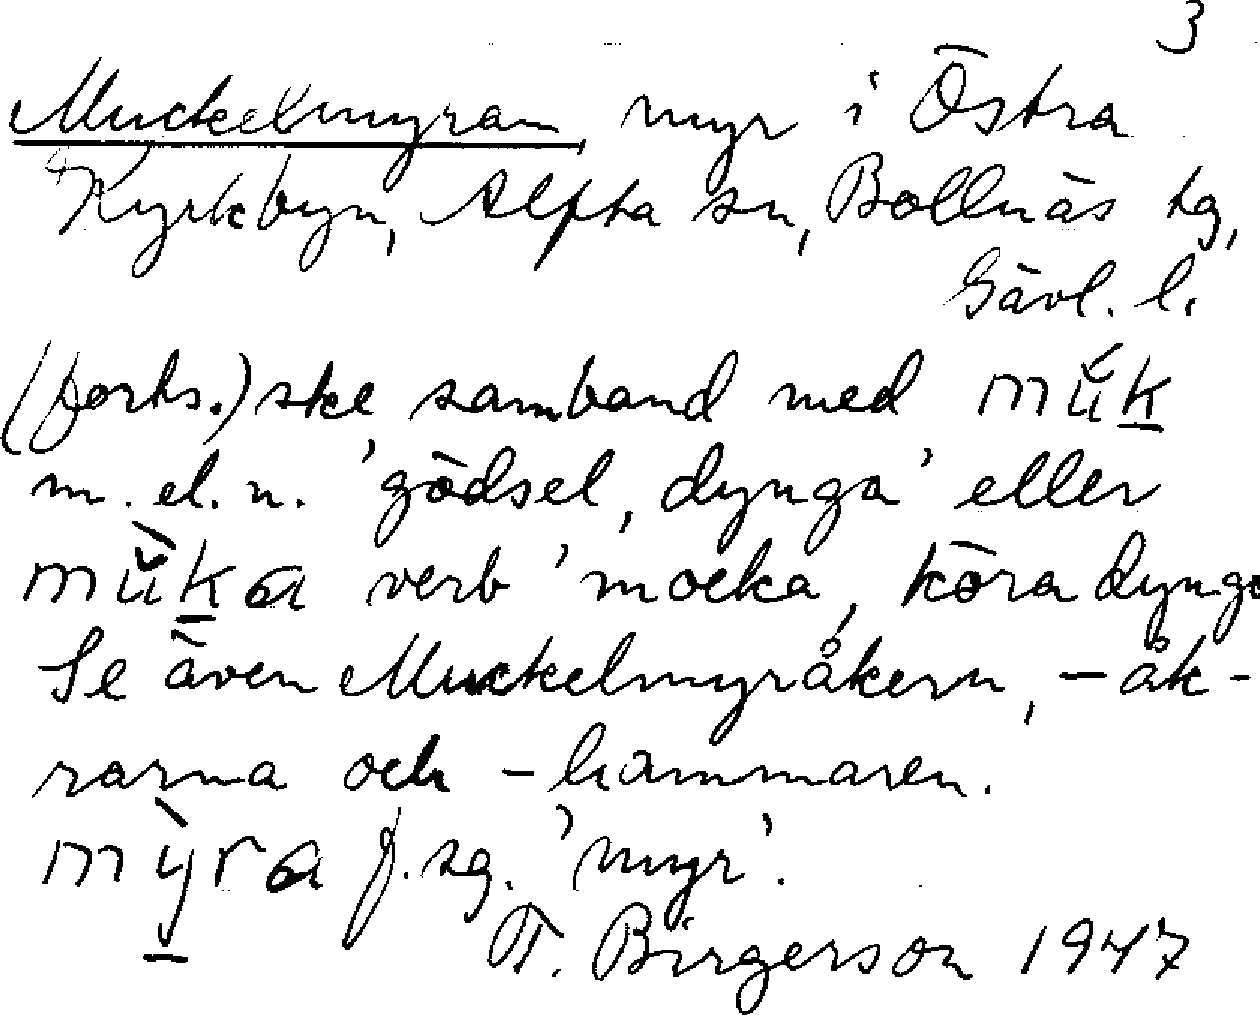 3
Muckelmyran, myr i Östra
Kyrkbyn, Alfta sn, Bollnäs tg,
Gävl. l.
(forts.) ske samband med mŭk
m. el. n. 'gödsel, dynga' eller
mŭka verb 'mocka, köra dynga
Se även Muckelmyråkern, -åk-
rarna och -hammaren.
mỳra f. sg. 'myr'.
T. Birgerson 1947